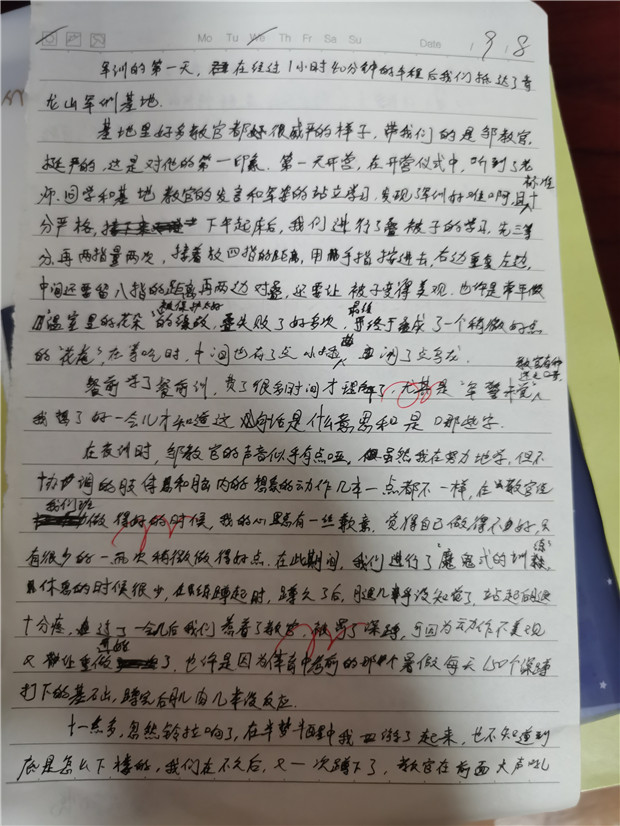 Mo Tu We Th Fr Sa Su Date 9 8
军训的第一天，在经过1小时40分钟的车程后我们抵达了青
龙山军训基地.
基地里好多教官都好很威严的样子，带我们的是邹教官，
挺严的，这是对他的第一印象.第一天开营，在开营仪式中，听到了老
标准
师.同学和基地教官的发言和军姿的站立学习，发现军训好难啊，且十
分严格，下午起床后，我们进行了叠被子的学习，先三等
分，再两指量两次，接着放四指的距离，用手指按进去，右边重复左边，
中间还要留八指的距离再两边对叠，还要让被子变得美观.也许是常年做
被保护太好 最终
"温室里的花朵"的缘故，叠失败了好多次，终于叠成了一个稍微好点
曲
的"花卷"，在军训时，中间也有了点小插，闹了点乌龙.
教官有种
餐前学了餐前训，费了很多时间才理解了，尤其是
我想了好一会儿才知道这句话是什么意思和是哪些字.
在夜训时，邹教官的声音似乎有点哑，虽然我在努力地学，但不
协调的肢体和脑内的想象的动作几乎一点都不一样，在教官说
我们班
做得好的时候，我的心里总有一丝歉意，觉得自己做得不好，只
练
有很少的一两次稍微做得好点.在此期间，我们进行了"魔鬼式的训"，
休息的时候很少，在练蹲起时，蹲久了后，腿几乎没知觉了，站起后腿
十分疼，过了一会儿后我们惹着了教官，被罚了深蹲，可因为动作不美观
又重做了，也许是因为体育中考前的那个暑假每天150个深蹲
打下的基石出，蹲完后肌肉几乎没反应.
十一点多，忽然铃拉响了，在半梦半醒中我爬了起来，也不知道到
底是怎么下楼的，我们在不久后，又一次蹲下了，教官在前面大声吼